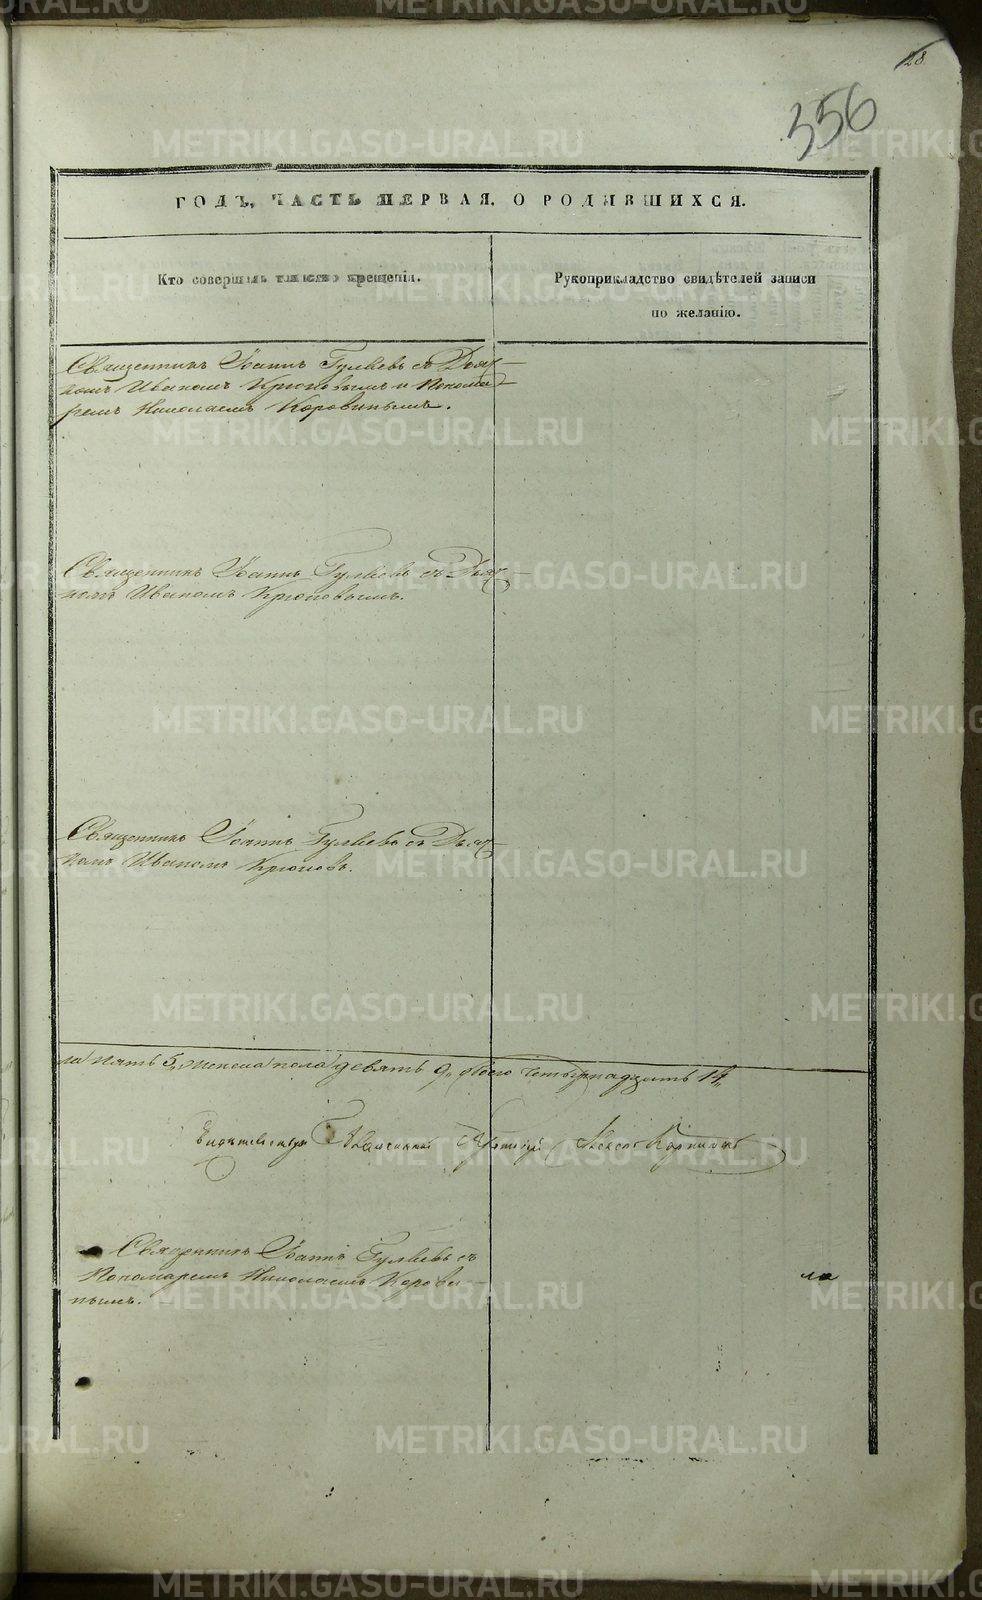 28
356
ГОДЪ, ЧАСТЬ ПЕРВАЯ. О РОДИВШИХСЯ.
Кто совершалъ таинство крещенія.
Рукоприкладство свидѣтелей записи
по желанію.
Священникъ Іоаннъ Гуляевъ съ Дьяч-
комъ Иваномъ Крюковымъ и Понома-
ремъ Николаемъ Коровинымъ.
Священникъ Іоаннъ Гуляевъ съ Дьяч-
комъ Иваномъ Крюковымъ.
Священникъ Іоаннъ Гуляевъ съ Дьяч-
комъ Иваномъ Крюковъ.
ла пять 5, женска пола девять 9, обоего четырнадцать 14,
Священникъ
Священникъ Іоаннъ Гуляевъ съ
Пономаремъ Николаемъ Корови-
нымъ.
ла
METRIKI.GASO-URAL.RU